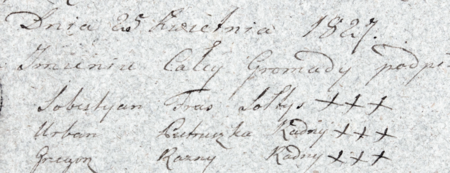 Dnia 25 Kwietnia 1827.
Imieniu Całey Gromady podpi
Sobestyan Tras Sołtys +++
Urban Pietruszka Radny +++
Gregorz Razny Radny +++